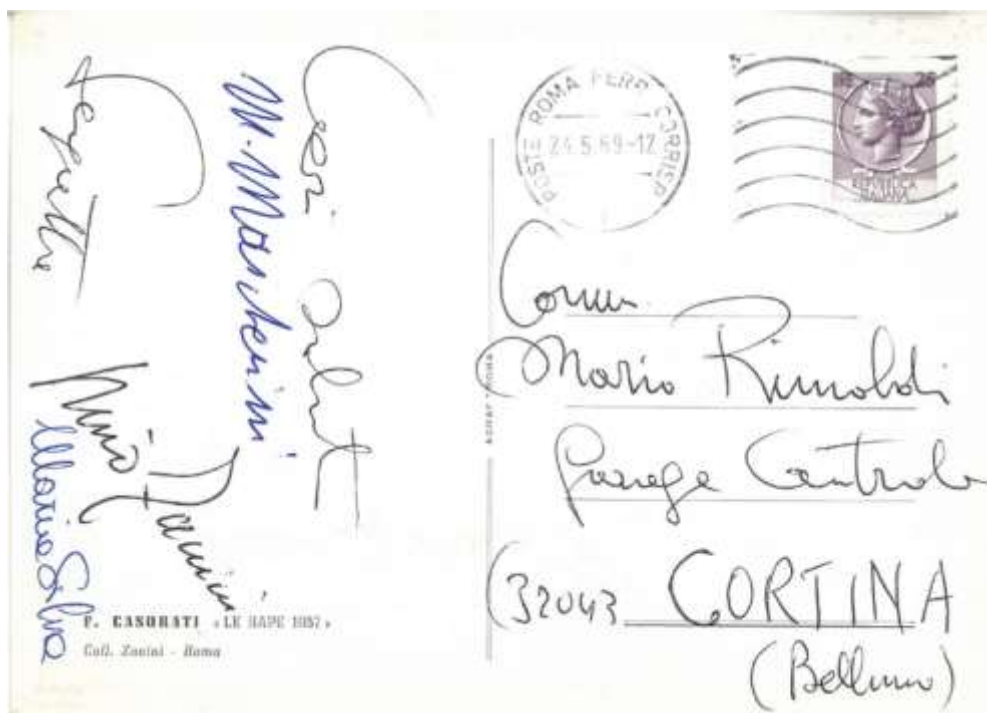 Cari saluti
M. Mascherini
Marina Silva
F. CASORATI «LE RAPE 1957»
Coll. Zanini - Roma
POSTE ROMA FERR. CORRISP.
24.5.69-12
REPUBBLICA
ITALIANA
Comm.
Mario Rimoldi
Garage Centrale
(32043 CORTINA
(Belluno)